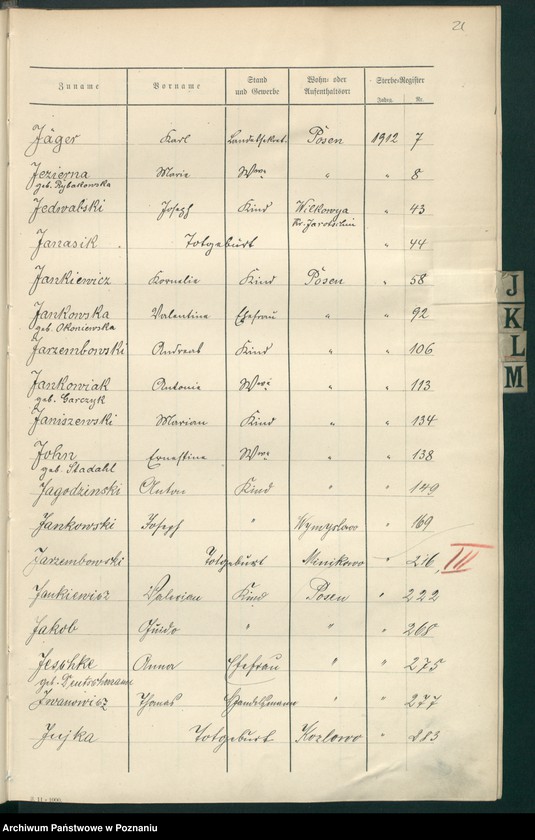 21
Zuname Vorname Stand und Gewerbe Wohn- oder Aufenthaltsort Sterbe-Register
Jahrg. Nr.
Jäger Karl Landessekret. Posen 1912 7
Jezierna Marie Wwe " " 8
geb. Rybakowska
Jedwabski Joseph Kind Wilkowya " 43
Kr. Jarotschin
Janasik Totgeburt " 44
Jankiewicz Kornelie Kind Posen " 58
Jankowska Valentine Ehefrau " " 92
geb. Okoniewska
Jarzembowski Andreas Kind " " 106
Jankowiak Antonie Wwe " " 113
geb. Garczyk
Janiszewski Marian Kind " " 134
John Ernestine Wwe " " 138
geb. Stadahl
Jagodzinski Anton Kind " " 149
Jankowski Joseph " Wymyslowo " 169
Jarzembowski Totgeburt Minikowo " 216, III
Jankiewicz Valerian Kind Posen " 222
Jakob Guido " " " 268
Jeschke Anna Ehefrau " " 275
geb.
Iwanowicz Thomas Handelsmann " " 277
Jujka Totgeburt Kozlowo " 283
J
K
L
M
Archiwum Państwowe w Poznaniu